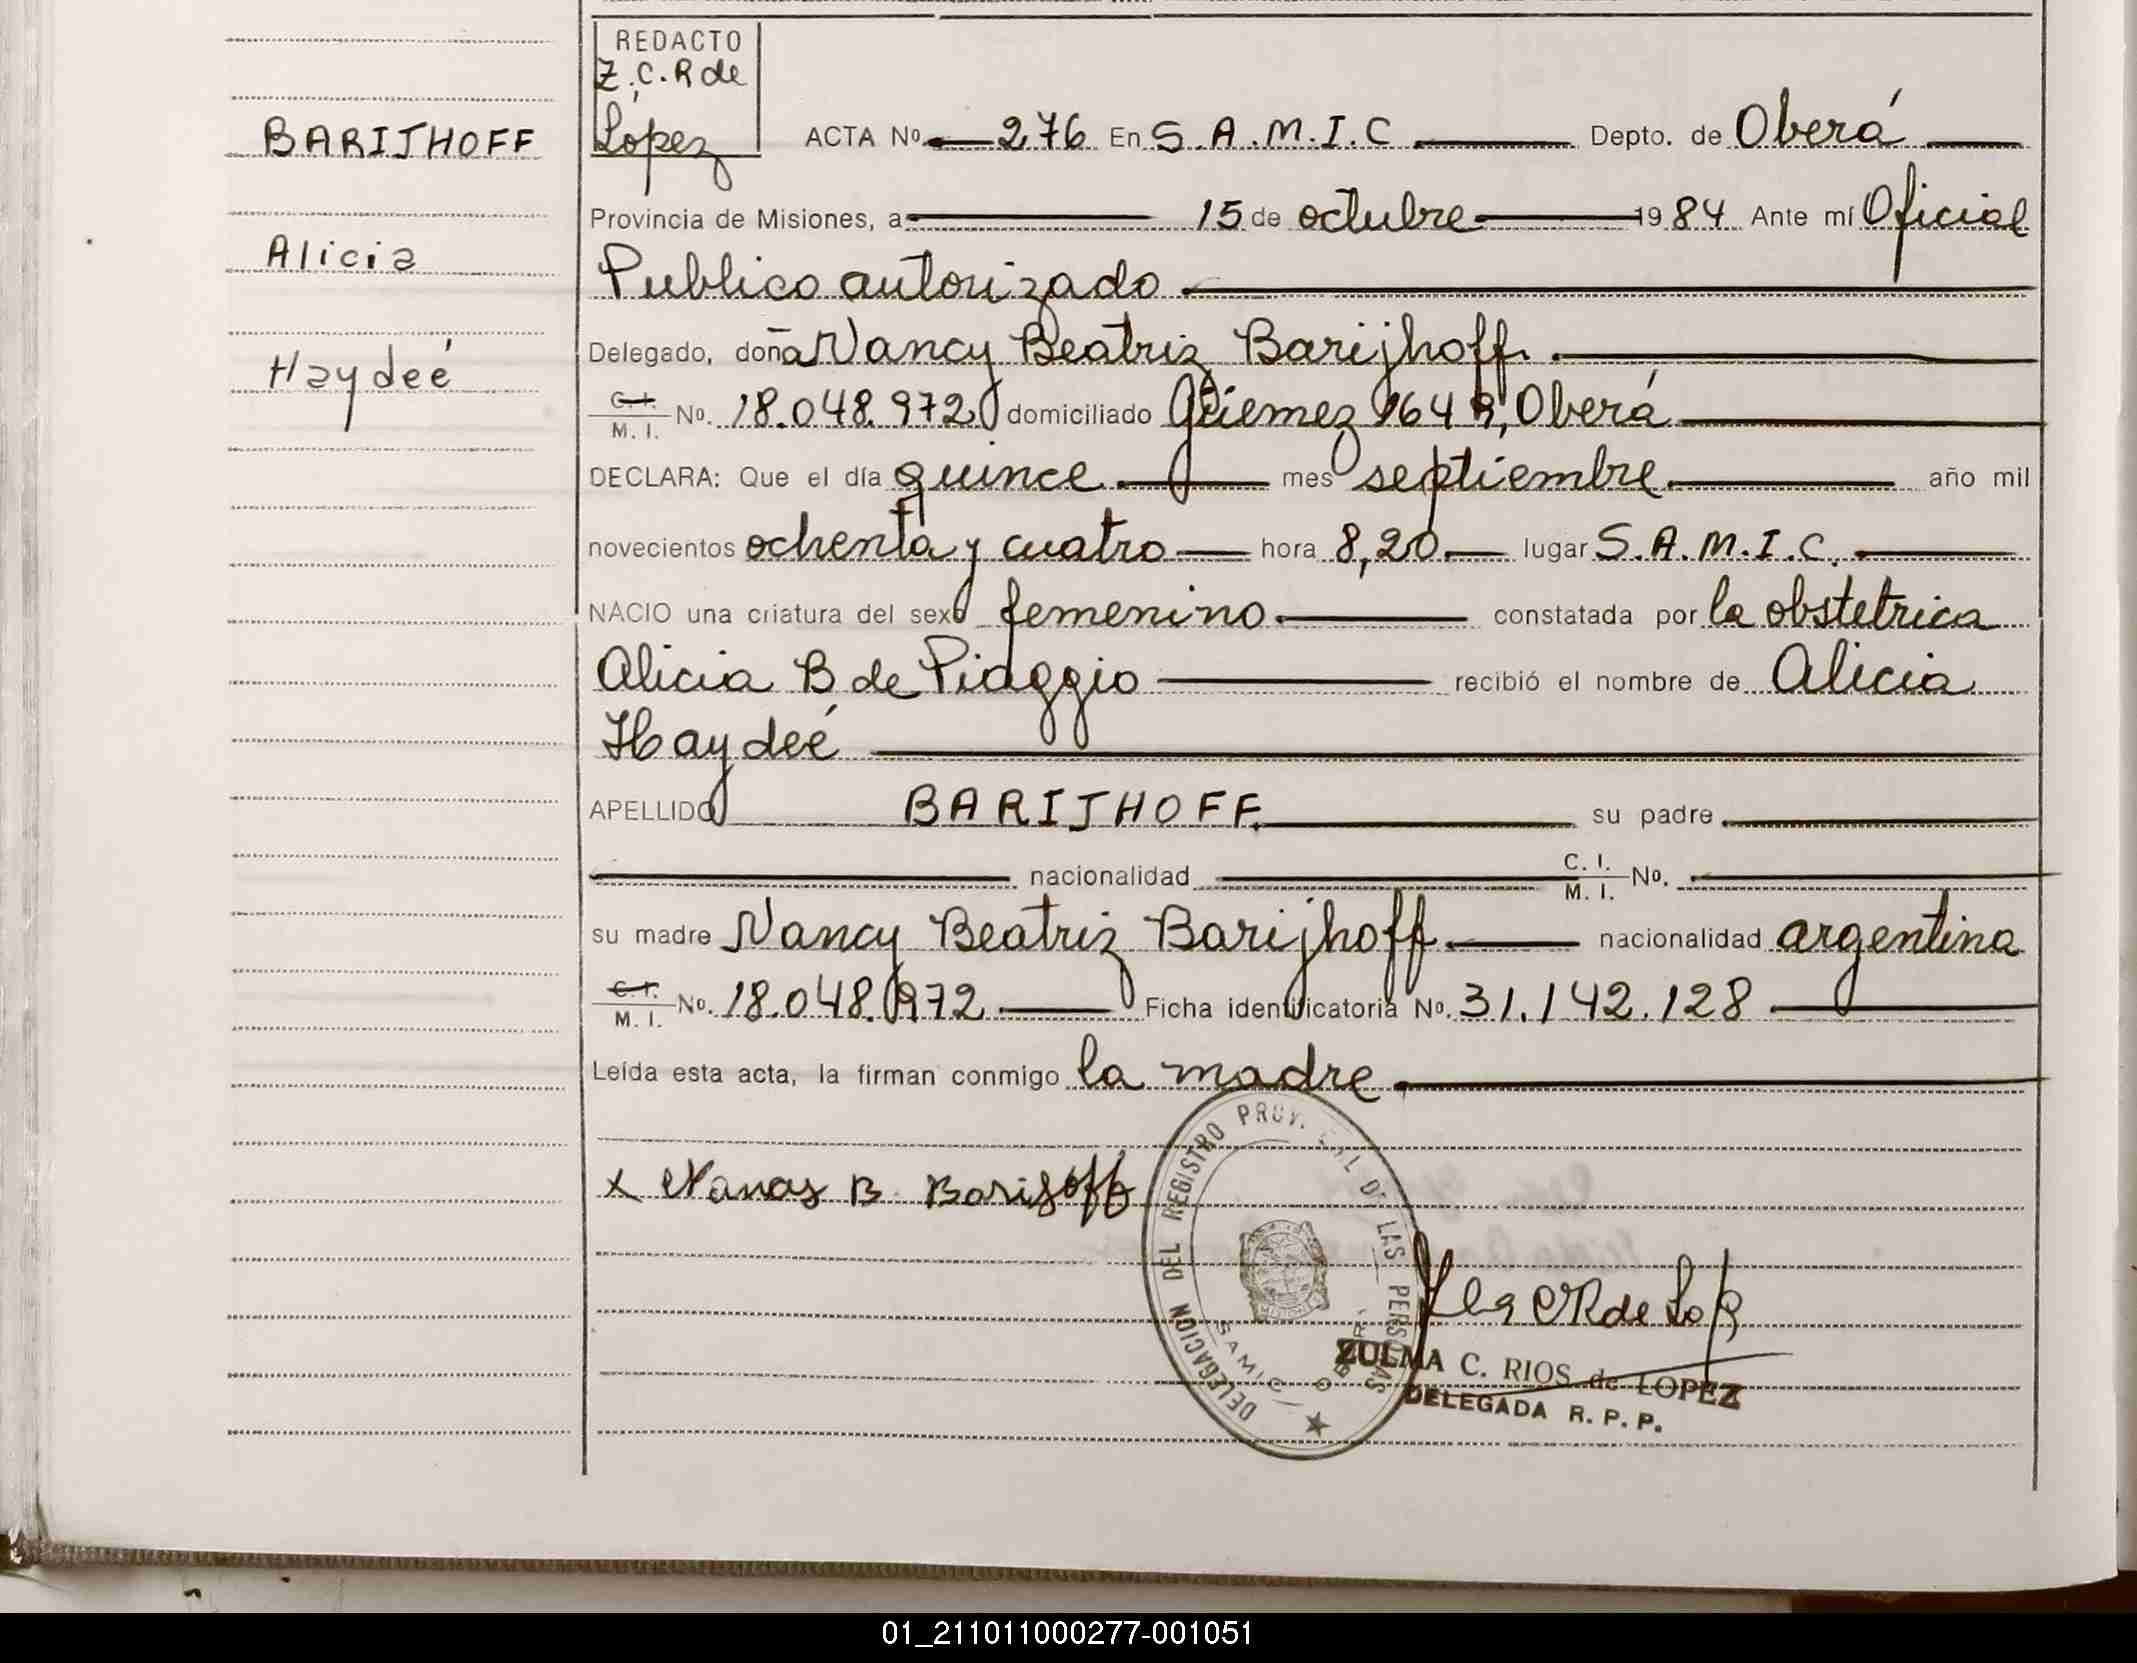 REDACTO
Z.C.R de
Lopez
BARIJHOFF
Alicia
Haydeé
ACTA Nº 276 En S.A.M.I.C Depto. de Oberá
Provincia de Misiones, a 15 de octubre 1984 Ante mí Oficial
Publico autorizado
Delegado, doña Nancy Beatriz Barijhoff.
C.I. M.I. Nº. 18.048.972 domiciliado Güemez 1649, Oberá
DECLARA: Que el día quince mes septiembre año mil
novecientos ochenta y cuatro hora 8,20 lugar S.A.M.I.C.
NACIO una criatura del sexo femenino constatada por la obstetrica
Alicia B de Piaggio recibió el nombre de Alicia
Haydeé
APELLIDO BARIJHOFF su padre
nacionalidad C.I. M.I. Nº.
su madre Nancy Beatriz Barijhoff nacionalidad argentina
C.I. M.I. Nº. 18.048.972 Ficha identificatoria Nº. 31.142.128
Leída esta acta, la firman conmigo la madre
x Nancy B. Barijoff
DELEGACION DEL REGISTRO PROV. DE LAS PERSONAS
SAMIC
ZULMA C. RIOS de LOPEZ
DELEGADA R.P.P.
01_211011000277-001051